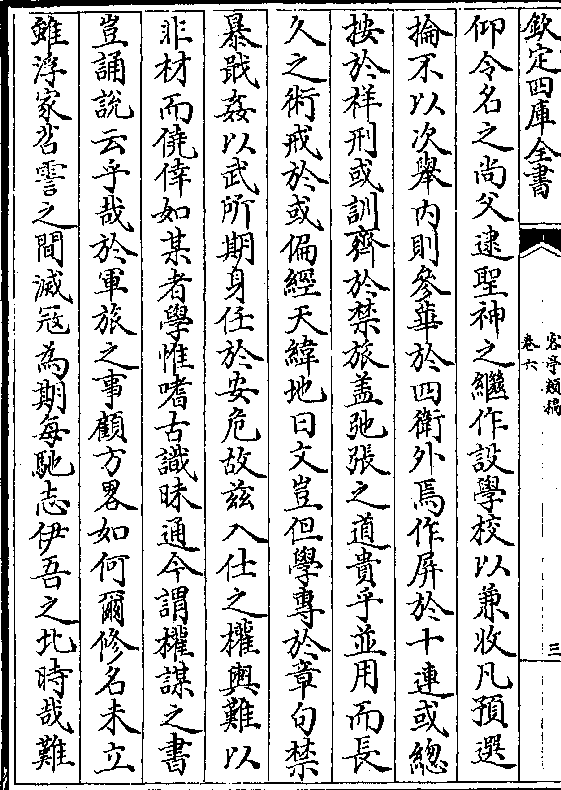 欽定四庫全書
客亭類稿
卷六
三
仰令名之尚父逮聖神之繼作設學校以兼收凡預選
掄不以次舉内則參華於四衛外焉作屏於十連或總
按於祥刑或訓齊於禁旅盖弛張之道貴乎並用而長
久之術戒於或偏經天緯地曰文豈但學專於章句禁
暴戢姦以武所期身任於安危故兹入仕之權輿難以
非材而僥倖如某者學惟嗜古識昧通今謂權謀之書
豈誦說云乎哉於軍旅之事顧方畧如何爾修名未立
雖浮家苕霅之間滅冦為期每馳志伊吾之北時哉難